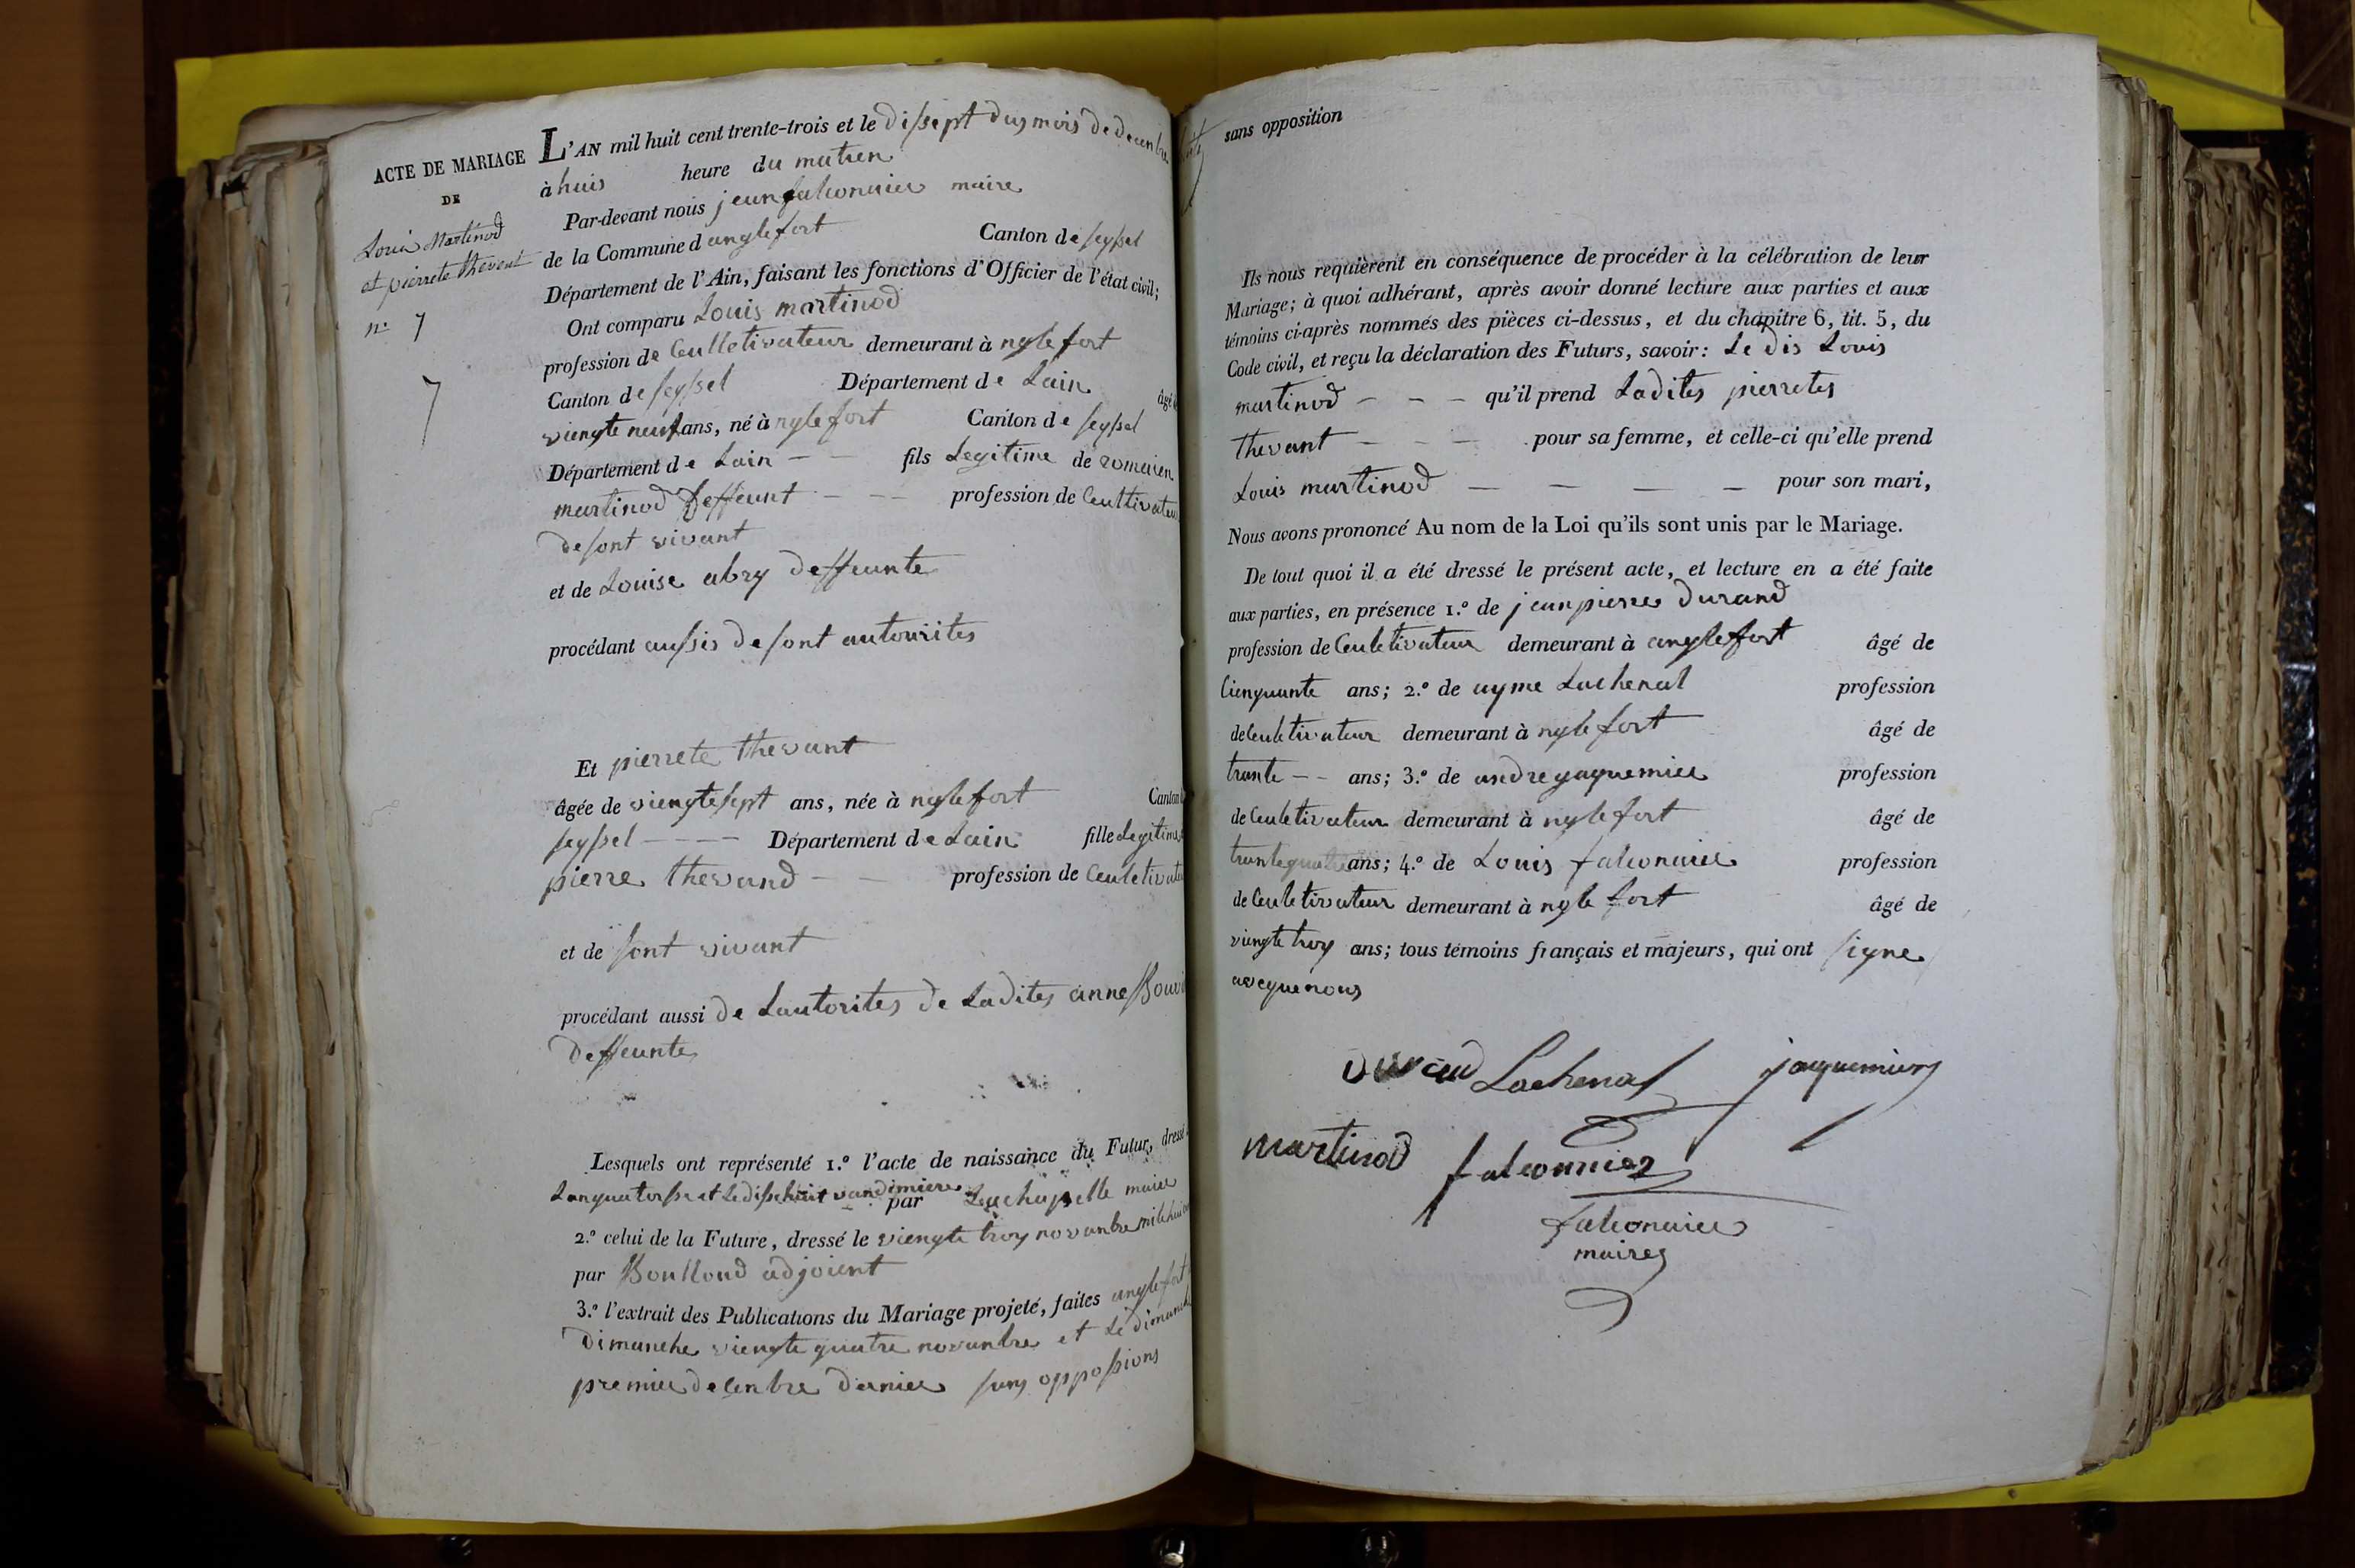 ACTE DE MARIAGE
DE
Louis Martinod
et pierrete thevent
n.° 7
7
L'AN mil huit cent trente-trois et le dissept dus mois de decenbre
à huis heure du matien
Par-devant nous jean falconnier maire
de la Commune d anglefort Canton de seyssel
Département de l'Ain, faisant les fonctions d'Officier de l'état civil;
Ont comparu Louis martinod
profession de Culletivateur demeurant à nglefort
Canton de seyssel Département de Lain âgé de
viengte neuf ans, né à nglefort Canton de seyssel
Département de Lain fils Legitime de romaien
martinod deffeunt profession de Ceultivateur
de sont vivant
et de Louise abry deffeunte
procédant aussis de sont autourites
Et pierrete thevant
âgée de viengte sept ans, née à nglefort Canton
seyssel Département de Lain fille Legitime
pierre thevand profession de Ceuletivateur
et de sont vivant
procédant aussi de Lautorites de Ladites anne
deffeunte
Lesquels ont représenté 1.° l'acte de naissance du Futur, dressé
Lanquatorsse et Le dissehuit vandimiere par Lachapelle maire
2.° celui de la Future, dressé le viengte troy novanbre
par adjoient
3.° l'extrait des Publications du Mariage projeté, faites anglefort
dimanche viengte quatre novanbre et Le dimanche
premier decenbre dernier sans oppossions
sans opposition
Ils nous requièrent en conséquence de procéder à la célébration de leur
Mariage; à quoi adhérant, après avoir donné lecture aux parties et aux
témoins ci-après nommés des pièces ci-dessus, et du chapitre 6, tit. 5, du
Code civil, et reçu la déclaration des Futurs, savoir: Le dis Louis
martinod - - - qu'il prend Ladites pierretes
thevant - - - pour sa femme, et celle-ci qu'elle prend
Louis martinod — — — — pour son mari,
Nous avons prononcé Au nom de la Loi qu'ils sont unis par le Mariage.
De tout quoi il a été dressé le présent acte, et lecture en a été faite
aux parties, en présence 1.° de jean pierre durand
profession de Ceuletivateur demeurant à anglefort âgé de
Cienquante ans; 2.° de ayme Lachenal profession
de Ceuletivateur demeurant à nglefort âgé de
trante - - ans; 3.° de andre gaquemier profession
de Ceuletivateur demeurant à nglefort âgé de
trantequatre ans; 4.° de Louis falconnier profession
de Ceuletivateur demeurant à nglefort âgé de
viengte troy ans; tous témoins français et majeurs, qui ont signe
aveque nous
durand Lachenal jaquemier
martinod falconnier
falconnier
maire